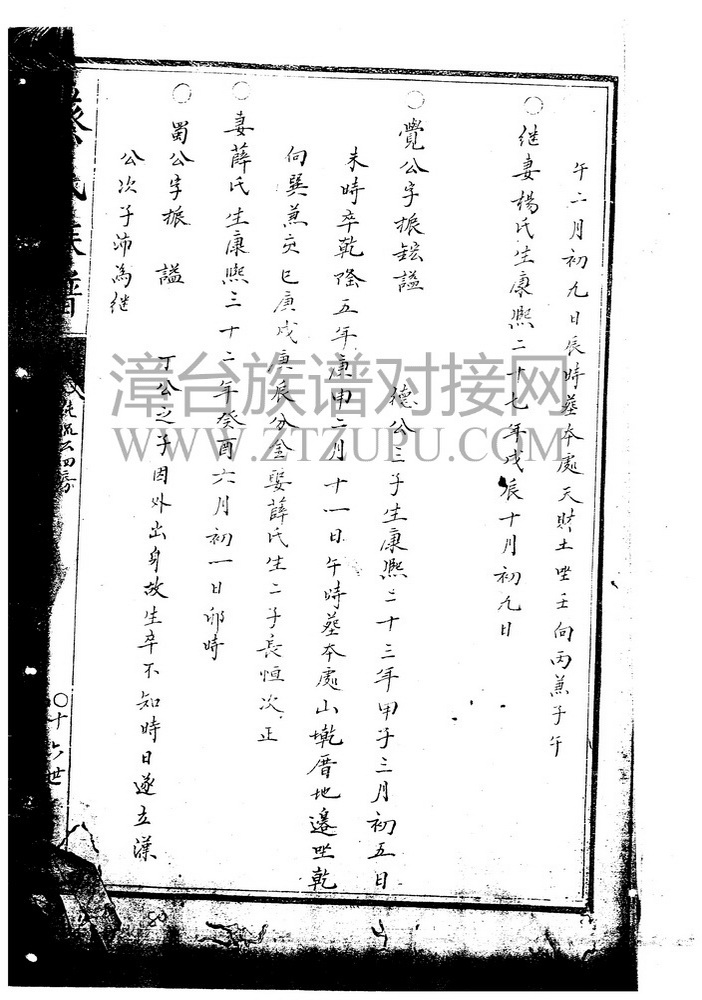 午二月初九日辰時葬本處天財土坐壬向丙兼子午
○継妻楊氏生康熙二十七年戊辰十月初九日
○覺公字振鋐謚 德公三子生康熙二十三年甲子三月初五日
未時卒乾隆五年庚申二月十一日午時葬本處山墘厝地邊坐乾
向巽兼亥巳庚戌庚辰分金娶薛氏生二子長恒次正
○妻薛氏生康熙三十二年癸酉六月初一日卯時
○蜀公字振 謚 丁公之子因外出身故生卒不知時日遂立漢
公次子沛為継
氏族譜
四房
○十六世
漳台族谱对接网
WWW.ZTZUPU.COM